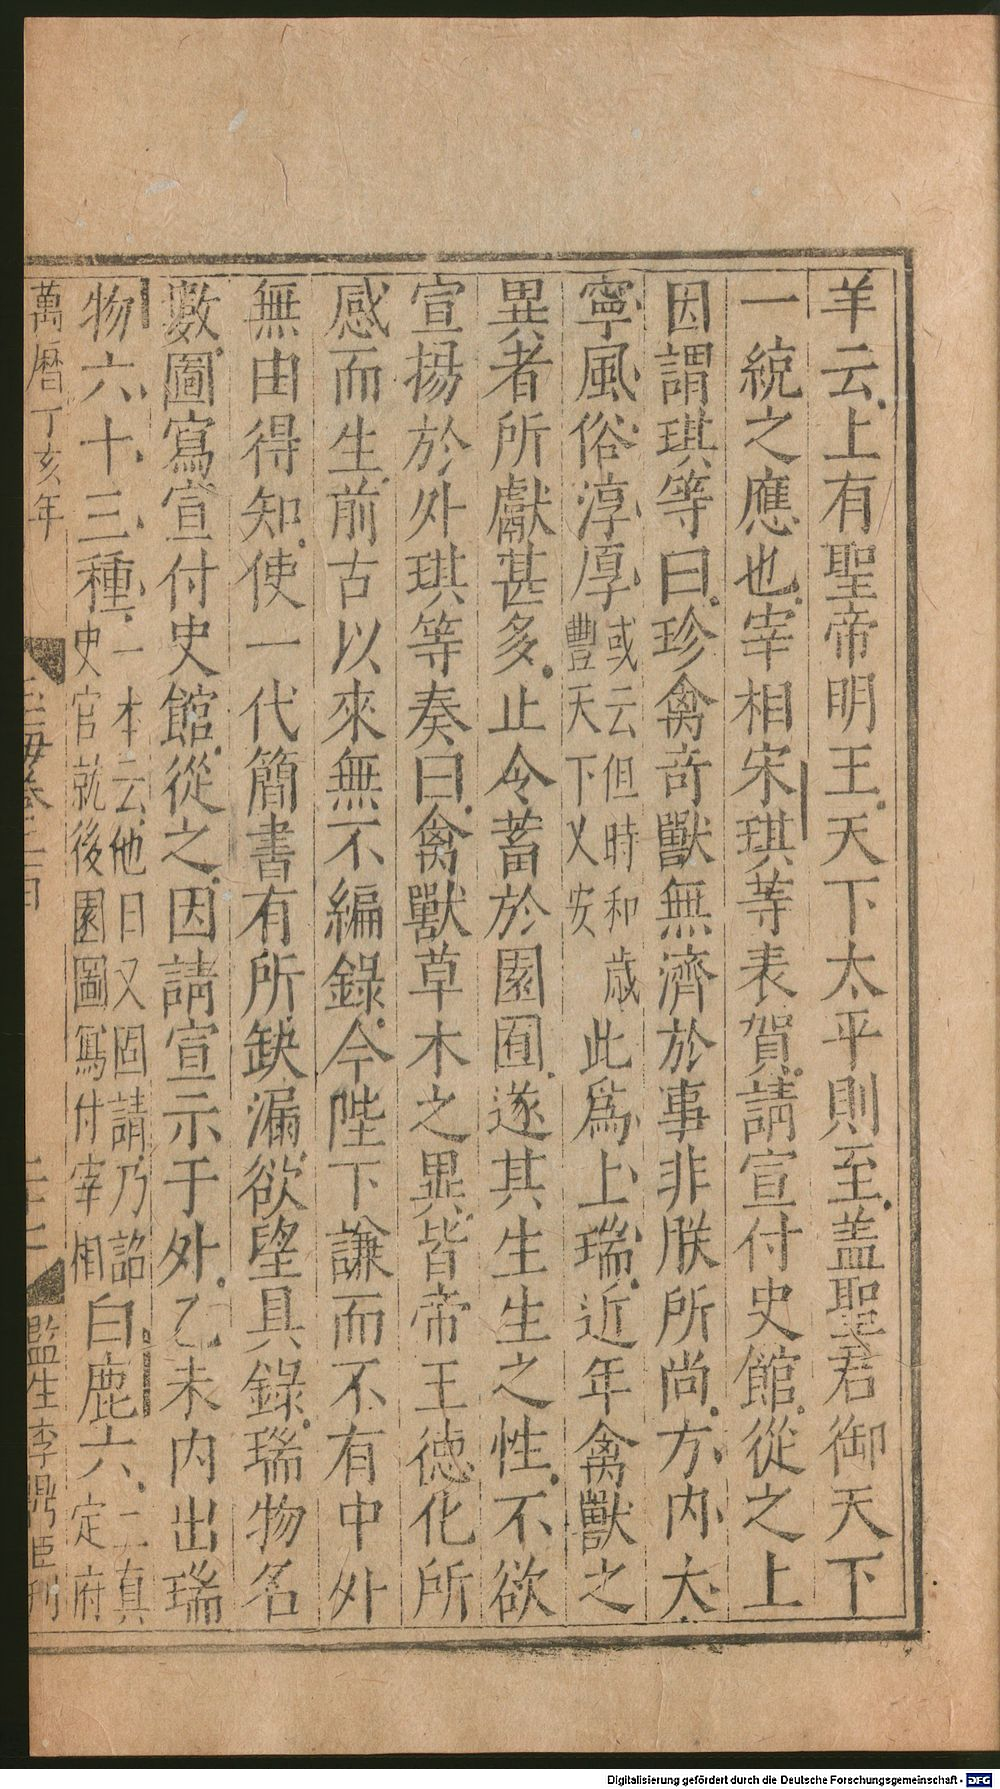 羊云上有聖帝明王天下太平則至盖聖君御天下
一統之應也宰相宋琪等表賀請宣付史館從之上
因謂琪等曰珍禽竒獸無濟於事非朕所尚方內大
寧風俗淳厚或云但時和歲豐天下乂安此爲上瑞近年禽獸之
異者所獻甚多止令蓄於園囿遂其生生之性不欲
宣揚於外琪等奏曰禽獸草木之異皆帝王德化所
感而生前古以來無不編錄今陛下謙而不有中外
無由得知使一代簡書有所缺漏欲望具錄瑞物名
數圖寫宣付史館從之因請宣示于外乙未內出瑞
物六十三種一本云他日又固請乃詔史官就後園圖寫付宰相白鹿六二真定府
萬曆丁亥年
監生李鼎臣刊
Digitalisierung gefördert durch die Deutsche Forschungsgemeinschaft - DFG